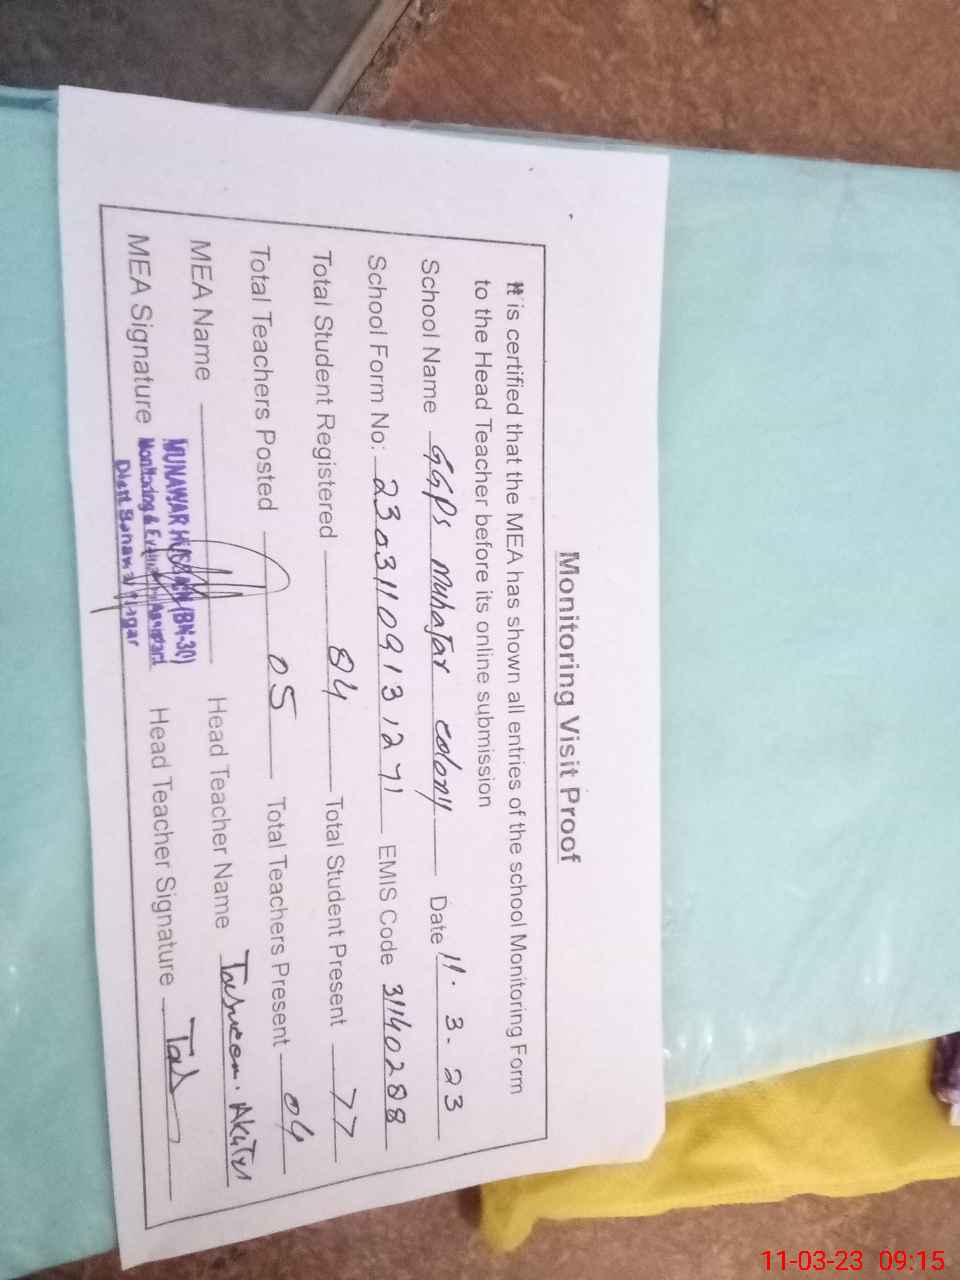 Monitoring Visit Proof
It is certified that the MEA has shown all entries of the school Monitoring Form
to the Head Teacher before its online submission
School Name GGPS Muhajar colony Date 11.3.23
School Form No: 230311091312 71 EMIS Code 31140288
Total Student Registered 84 Total Student Present 77
Total Teachers Posted 05 Total Teachers Present 04
MEA Name Head Teacher Name Akhter
MEA Signature Head Teacher Signature
MUNAWAR HUSSAIN (BN-30)
Monitoring & Evaluation Assistant
Distt. Bahawalnagar
11-03-23 09:15